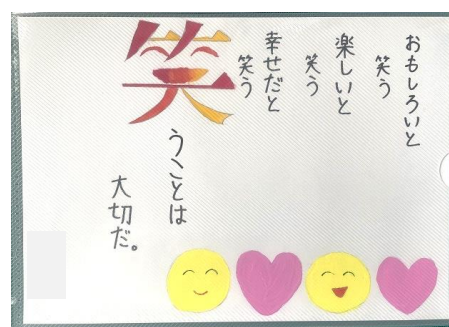 おもしろいと
笑う
楽しいと
笑う
幸せだと
笑う
笑うことは
大切だ。